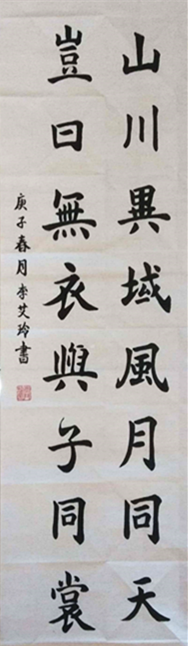 山川異域風月同天
豈曰無衣與子同裳
庚子春月李艾玲書